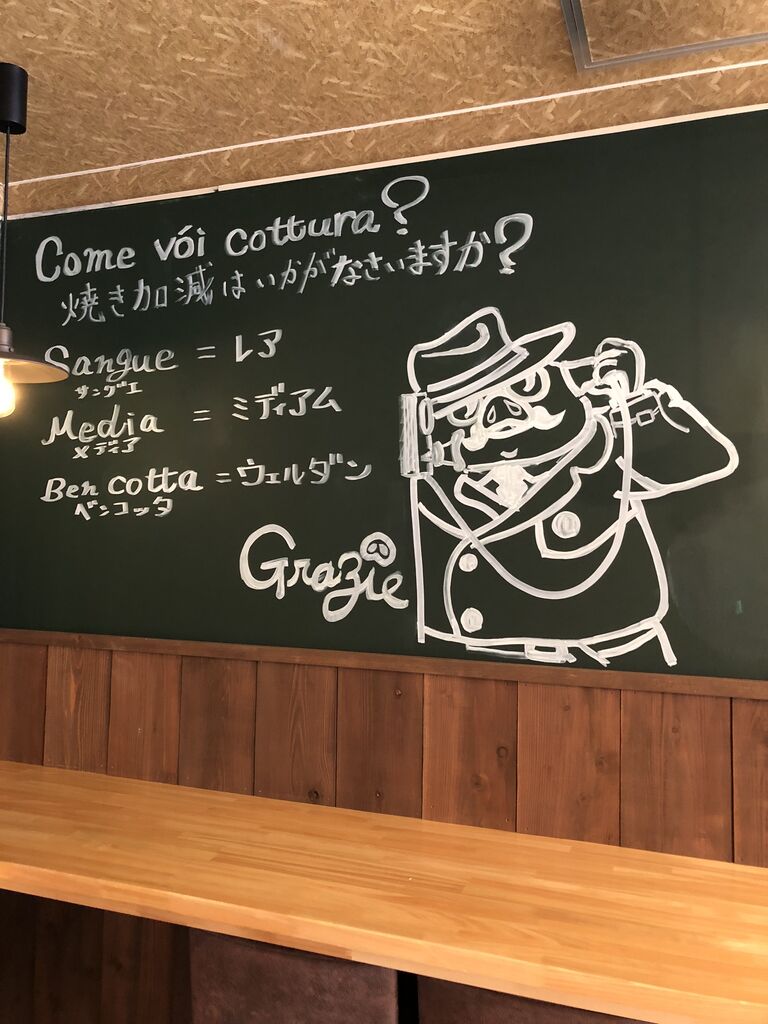 Come vói cottura?
焼き加減はいかがなさいますか?
Sangue = レア
サングエ
Media = ミディアム
メディア
Ben cotta = ウェルダン
ベンコッタ
Grazie